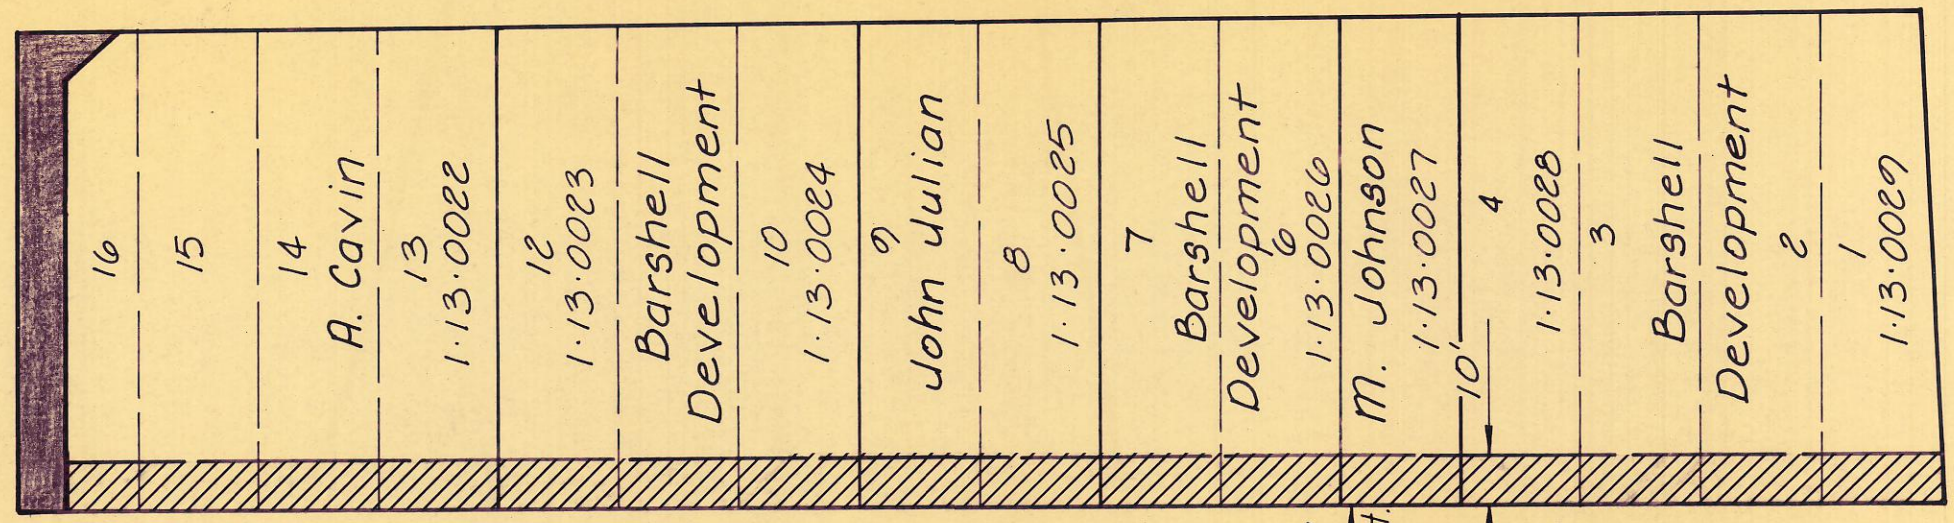 16
15
14
A. Cavin
13
1·13·0022
12
1·13·0023
Barshell
Development
10
1·13·0024
9
John Julian
8
1·13·0025
7
Barshell
Development
6
1·13·0026
M. Johnson
1·13·0027
10'
4
1·13·0028
3
Barshell
Development
2
1
1·13·0029